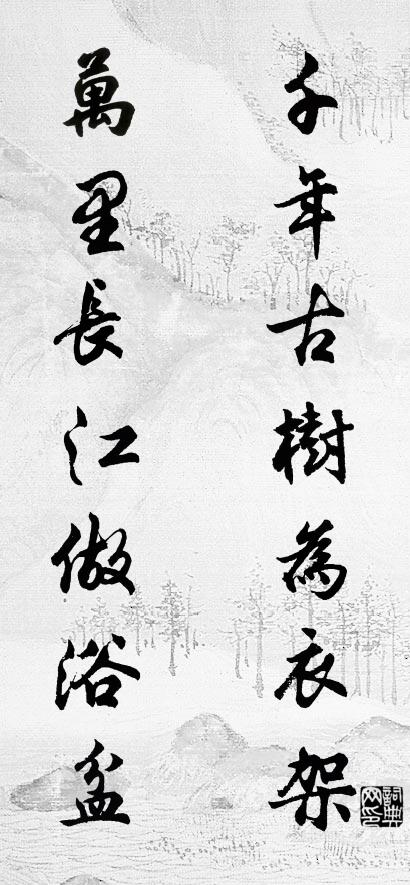 千年古樹為衣架
萬里長江做浴盆
詞典網印